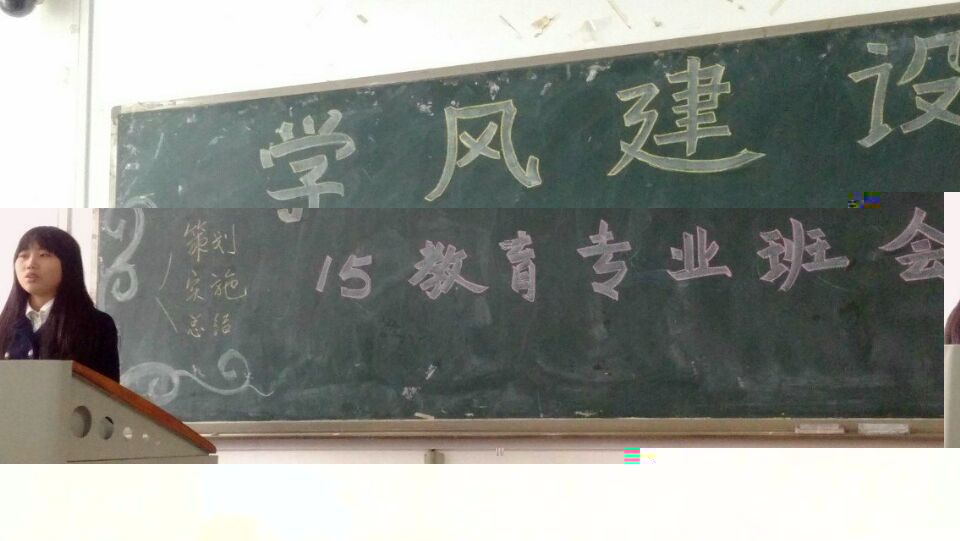 学风建设
策划
实施
总结
15教育专业班会